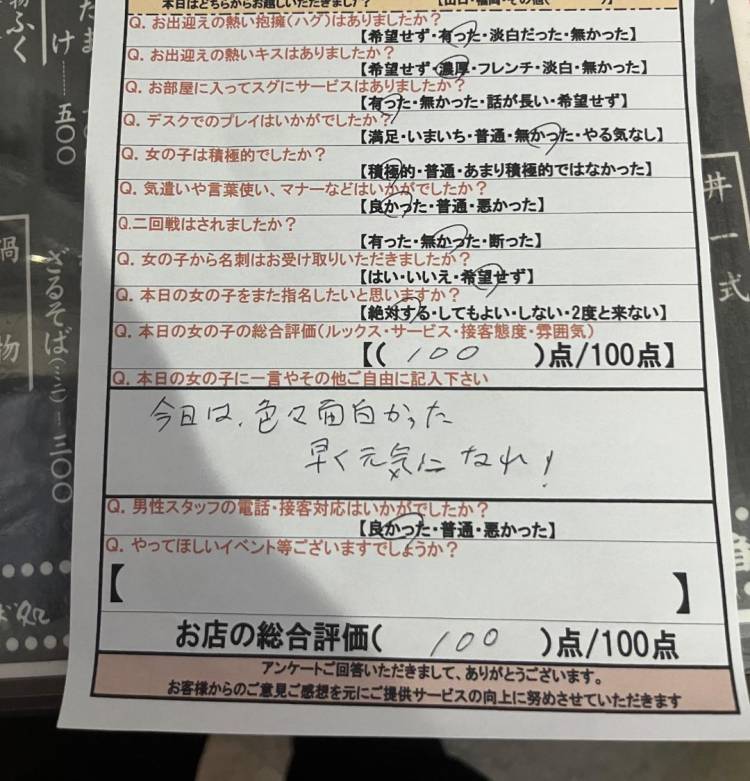 本日はどちらからお越しいただきました？
Q. お出迎えの熱い抱擁(ハグ)はありましたか？
【希望せず・有った・淡白だった・無かった】
Q. お出迎えの熱いキスはありましたか？
【希望せず・濃厚・フレンチ・淡白・無かった】
Q. お部屋に入ってスグにサービスはありましたか？
【有った・無かった・話が長い・希望せず】
Q. デスクでのプレイはいかがでしたか？
【満足・いまいち・普通・無かった・やる気なし】
Q. 女の子は積極的でしたか？
【積極的・普通・あまり積極的ではなかった】
Q. 気遣いや言葉使い、マナーなどはいかがでしたか？
【良かった・普通・悪かった】
Q.二回戦はされましたか？
【有った・無かった・断った】
Q. 女の子から名刺はお受け取りいただきましたか？
【はい・いいえ・希望せず】
Q. 本日の女の子をまた指名したいと思いますか？
【絶対する・してもよい・しない・2度と来ない】
Q. 本日の女の子の総合評価(ルックス・サービス・接客態度・雰囲気)
【( 100 )点/100点】
Q. 本日の女の子に一言やその他ご自由に記入下さい
今日は、色々面白かった
早く元気になれ!
Q. 男性スタッフの電話・接客対応はいかがでしたか？
【良かった・普通・悪かった】
Q. やってほしいイベント等ございますでしょうか？
【 】
お店の総合評価( 100 )点/100点
アンケートご回答いただきまして、ありがとうございます。
お客様からのご意見ご感想を元にご提供サービスの向上に努めさせていただきます
五〇〇
ざるそば(ミニ)…三〇〇
丼一式
物